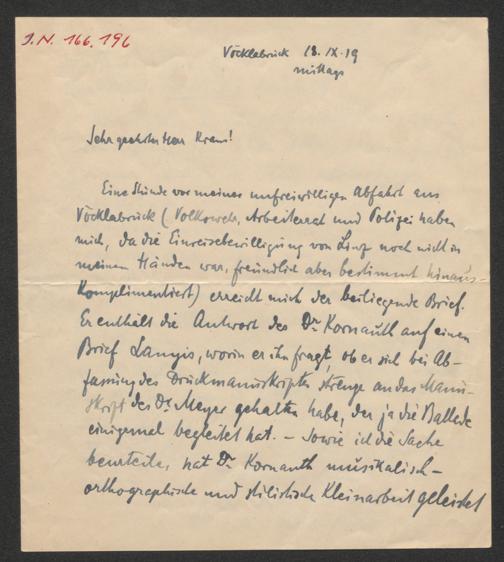 J.N. 166.196
Vöcklabruck 18. IX. 19
mittags
Sehr geehrter Herr Kraus!
Eine Stunde vor meiner unfreiwilligen Abfahrt aus
Vöcklabruck (Volkswehr, Arbeiterrat und Polizei haben
mich, da die Einreisebewilligung von Linz noch nicht in
meinen Händen war, freundlich aber bestimmt hinaus-
komplimentiert) erreicht mich der beiliegende Brief.
Er enthält die Antwort des Dr Kornauth auf einen
Brief Lanyis, worin er ihn fragt, ob er sich bei Ab-
fassung des Druckmanuskriptes strenge an das Manu-
skript des Dr Meyer gehalten habe, der ja die Ballade
einigemal begleitet hat. – Sowie ich die Sache
beurteile, hat Dr Kornauth musikalisch-
orthographische und stilistische Kleinarbeit geleistet